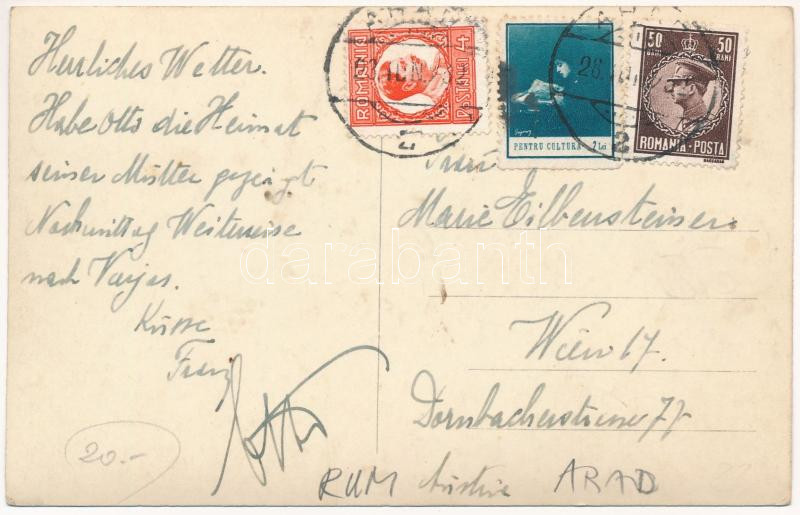 Herrliches Wetter.
Habe Otto die Heimat
seiner Mutter gezeigt
Nachmittag Weiterreise
nach Varjas.
Küsse
Franz
Otto
ROMANIA
4
POSTA
PENTRU CULTURA 2 Lei
50 50
BANI BANI
ROMANIA·POSTA
2
Frau
Marie Eilbensteiner
Wien 17.
Dornbacherstrasse 77
20.-
RUM Austria ARAD
darabanth